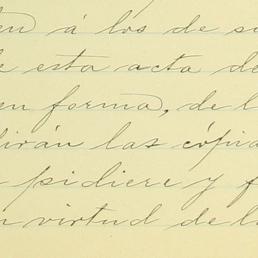 en á los de su
e esta acta de
en forma, de l
dirán las cópia
pidiere y f
n virtud de l